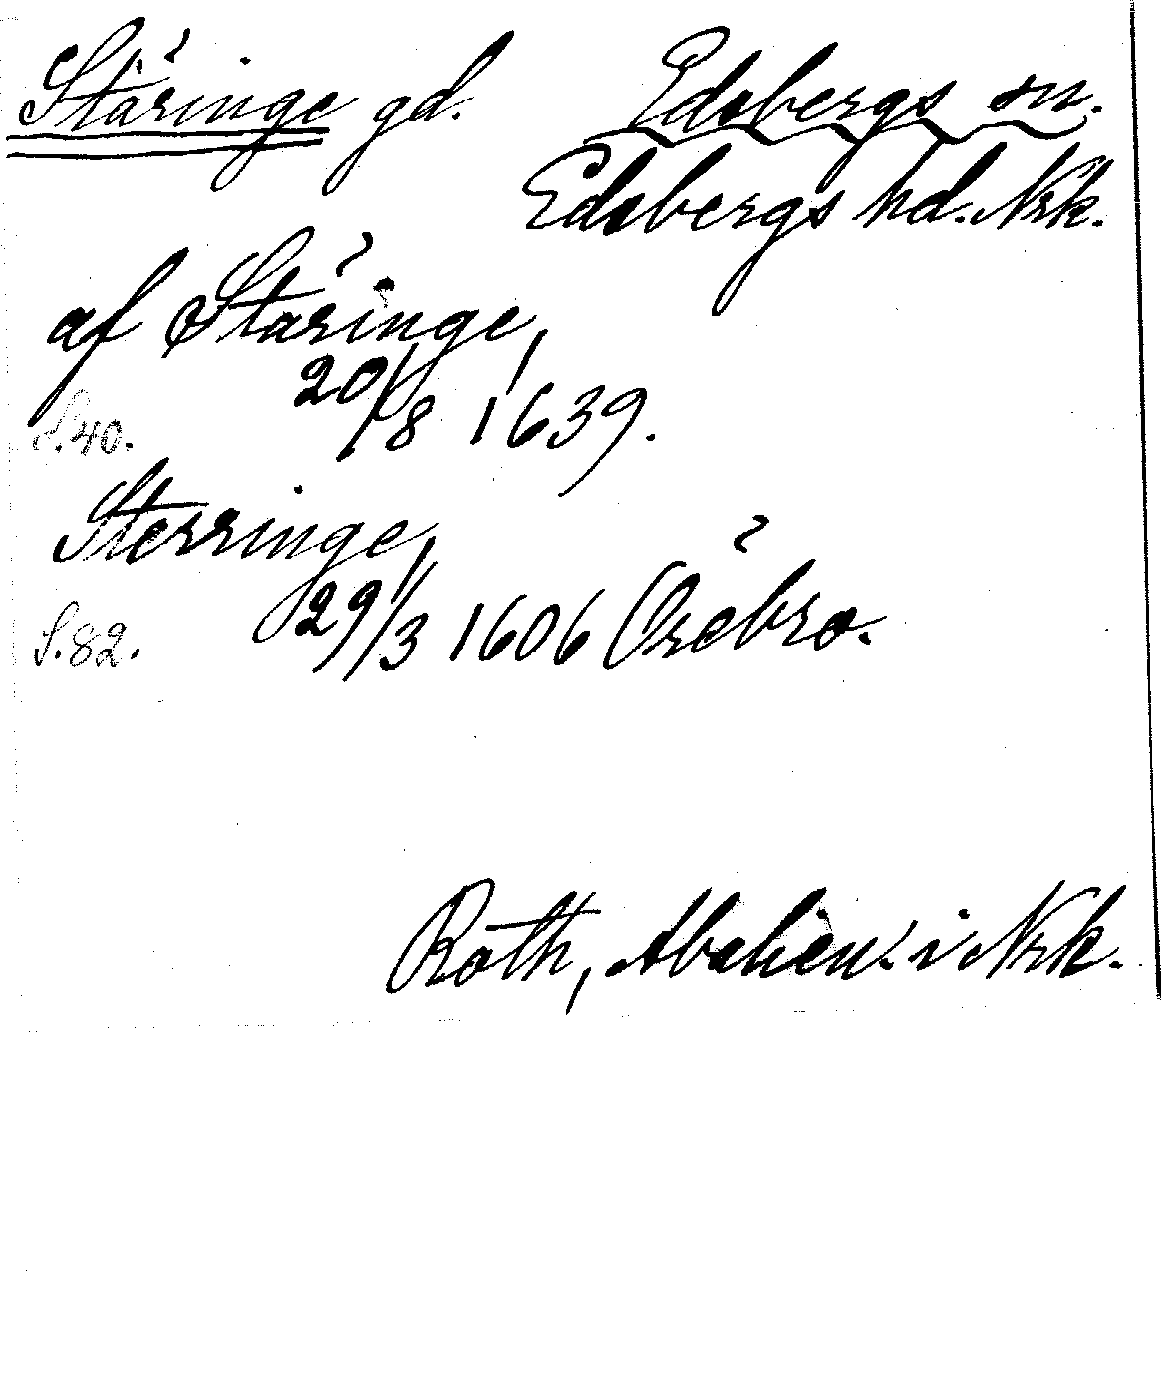 Stäringe gd. Edsbergs sn.
Edsbergs hd. Nrk.
af Stäringe,
20/8 1639.
S.40.
Sterringe,
29/3 1606 Örebro.
S.82.
Roth, i Nrk.